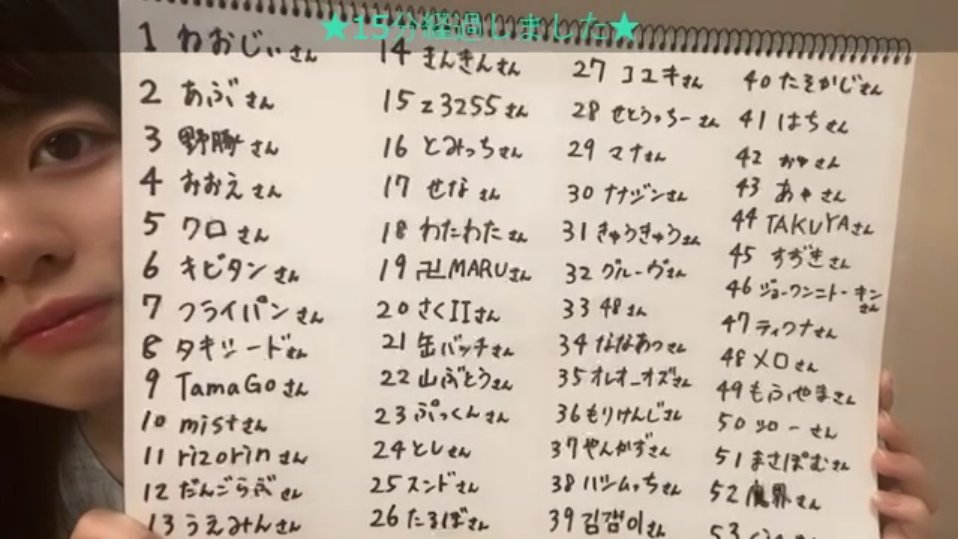 ★15分経過しました★
1 ねおじぃさん
2 あぶさん
3 野豚さん
4 おおえさん
5 クロさん
6 キビタンさん
7 フライパンさん
8 タキシードさん
9 TamaGoさん
10 mistさん
11 rizorinさん
12 だんごらぶさん
13 うえみんさん
14 きんきんさん
15 z3255さん
16 とみっちさん
17 せなさん
18 わたわたさん
19 卍MARUさん
20 さくIIさん
21 缶バッチさん
22 山ぶとうさん
23 ぷっくんさん
24 としさん
25 スンドさん
26 たるぼさん
27 コユキさん
28 せとうっちーさん
29 マナさん
30 ナナジンさん
31 きゅうきゅうさん
32 グルーヴさん
33 48さん
34 ななあつさん
35 オレオーオズさん
36 もりけんじさん
37 やんかずさん
38 ハシムっちさん
39 김갬이さん
40 たそかじさん
41 はちさん
42 おゃさん
43 あゃさん
44 TAKUYAさん
45 すぢきさん
46 ジョーワンニトーキンさん
47 ティクナさん
48 メロさん
49 もふやまさん
50 ツローさん
51 まさぽむさん
52 魔界さん
53